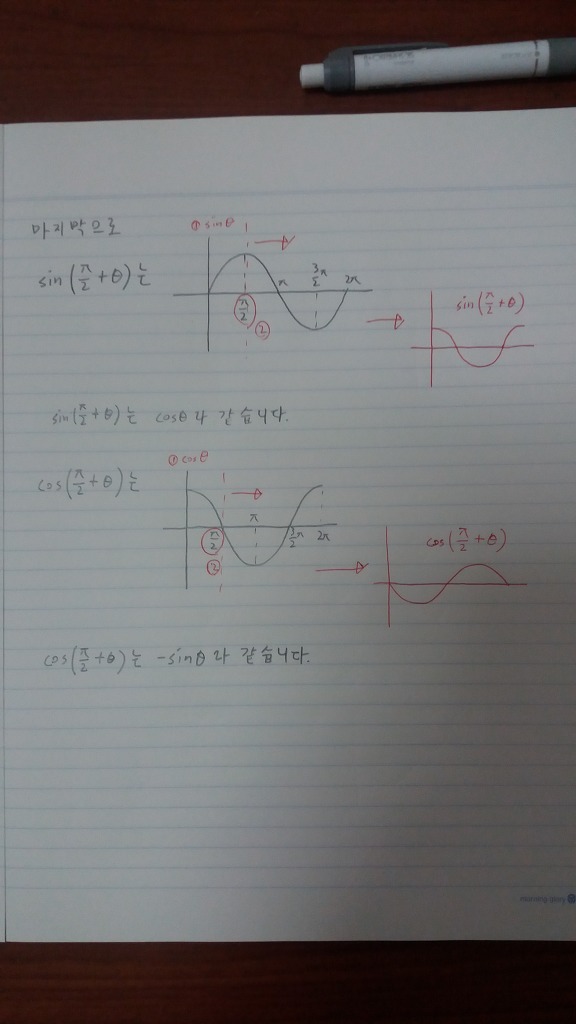 마지막으로
① sinθ
sin(π/2+θ)는
π
3/2π
2π
π/2
②
sin(π/2+θ)
sin(π/2+θ)는 cosθ와 같습니다.
① cosθ
cos(π/2+θ)는
π
π/2
3/2π
2π
②
cos(π/2+θ)
cos(π/2+θ)는 -sinθ와 같습니다.